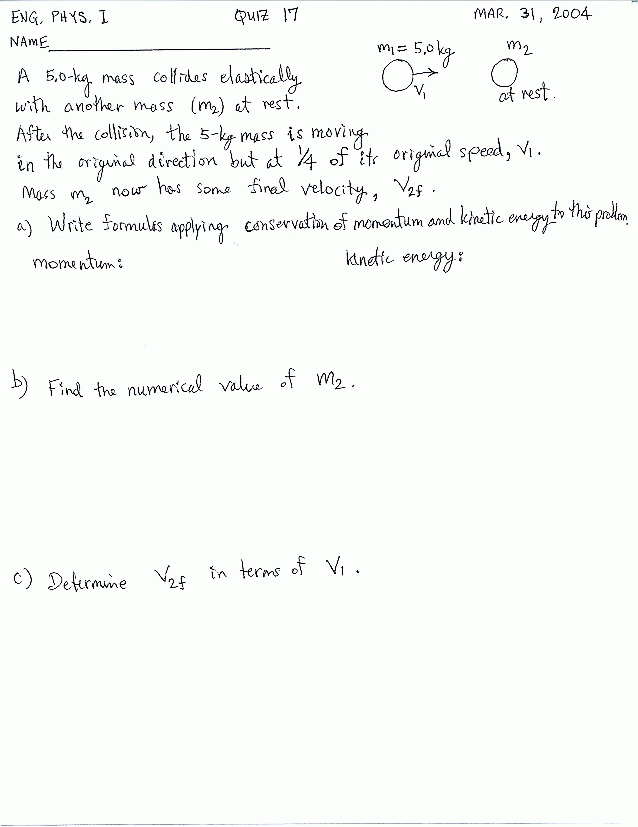 ENG. PHYS. I QUIZ 17 MAR. 31, 2004
NAME
m₁ = 5.0 kg m₂
V₁ at rest.
A 5.0-kg mass collides elastically
with another mass (m₂) at rest.
After the collision, the 5-kg mass is moving
in the original direction but at 1/4 of its original speed, V₁.
Mass m₂ now has some final velocity, V₂f.
a) Write formulas applying conservation of momentum and kinetic energy to this problem.
momentum: kinetic energy:
b) Find the numerical value of m₂.
c) Determine V₂f in terms of V₁.